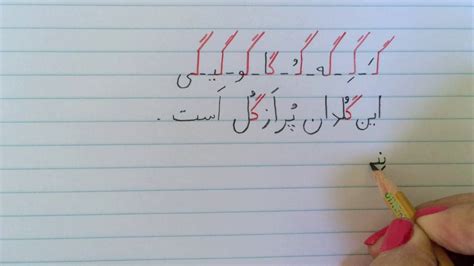 گَـ گِـ گه گُـ گا گو گیـ گی
این گُلدان پُر اَز گُل اَست .